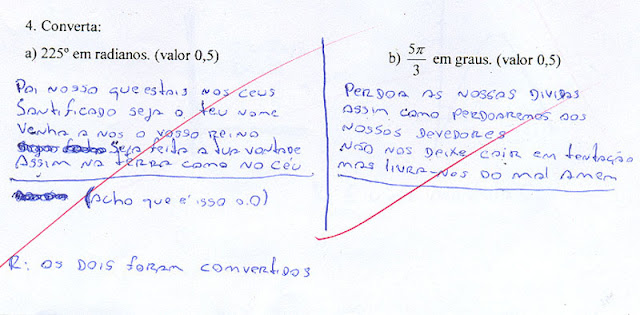 4. Converta:
a) 225º em radianos. (valor 0,5)
Pai nosso que estais nos ceus
Santificado seja o teu nome
Venha a nos o vosso reino
Seja feita a tua vontade
Assim na terra como no céu
(Acho que é isso o.O)
b) 5π/3 em graus. (valor 0,5)
Perdoa as nossas dividas
assim como perdoaremos aos
nossos devedores
não nos deixe cair em tentação
mas livra-nos do mal amem
R: os dois foram comvertidos